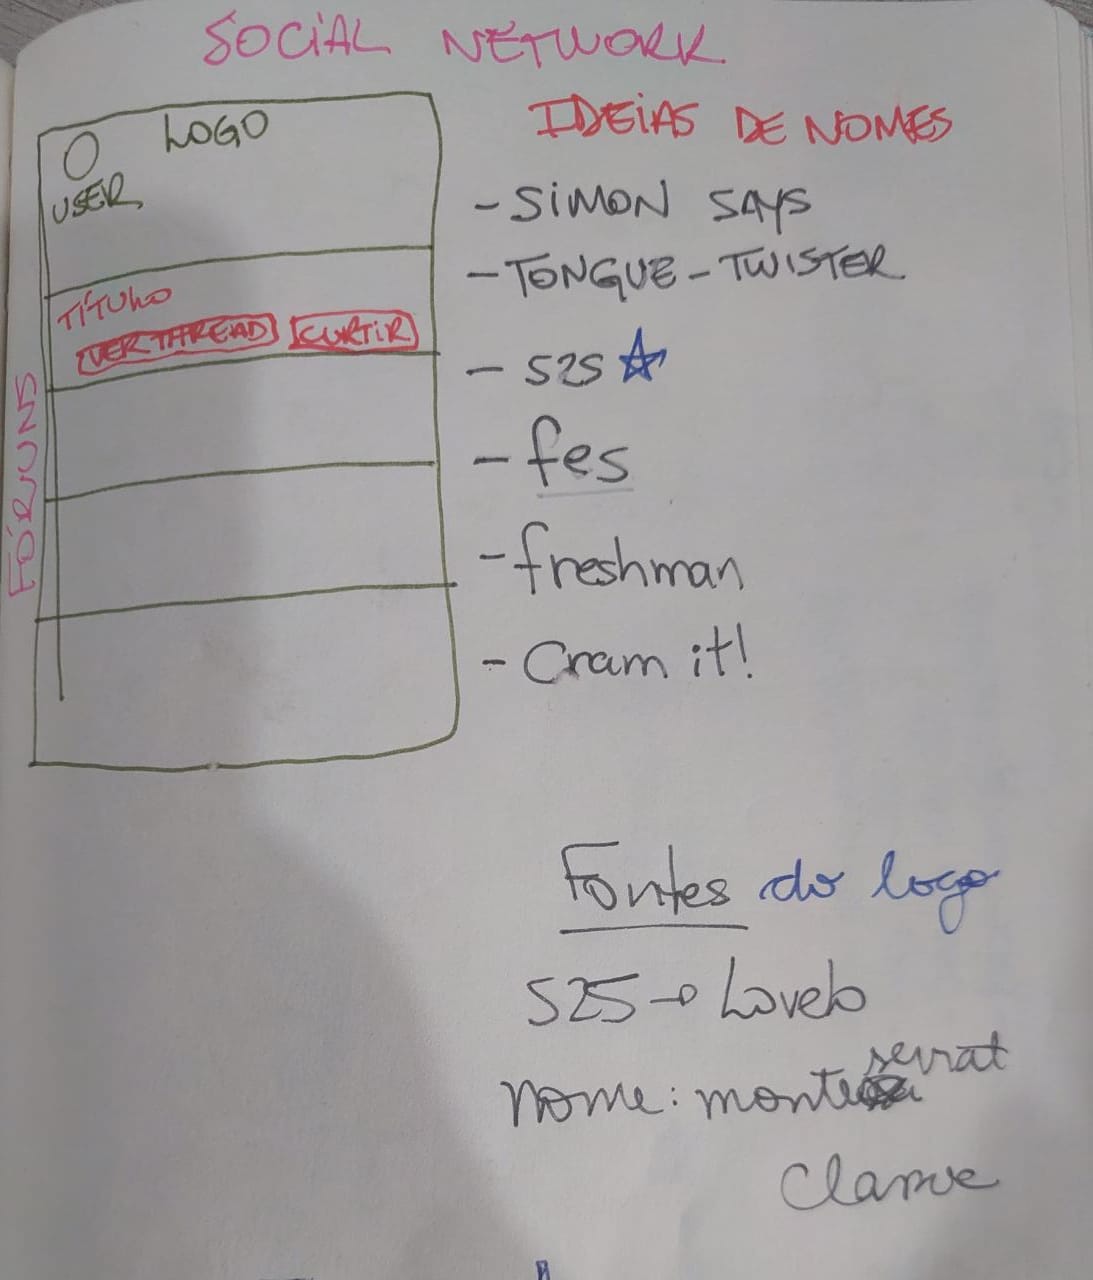 SOCIAL NETWORK
LOGO
USER
TÍTULO
VER THREAD CURTIR
FÓRUNS
IDEIAS DE NOMES
- SIMON SAYS
- TONGUE-TWISTER
- S2S
- fes
- freshman
- Cram it!
Fontes do logo
S2S → Lovelo
nome: montserrat